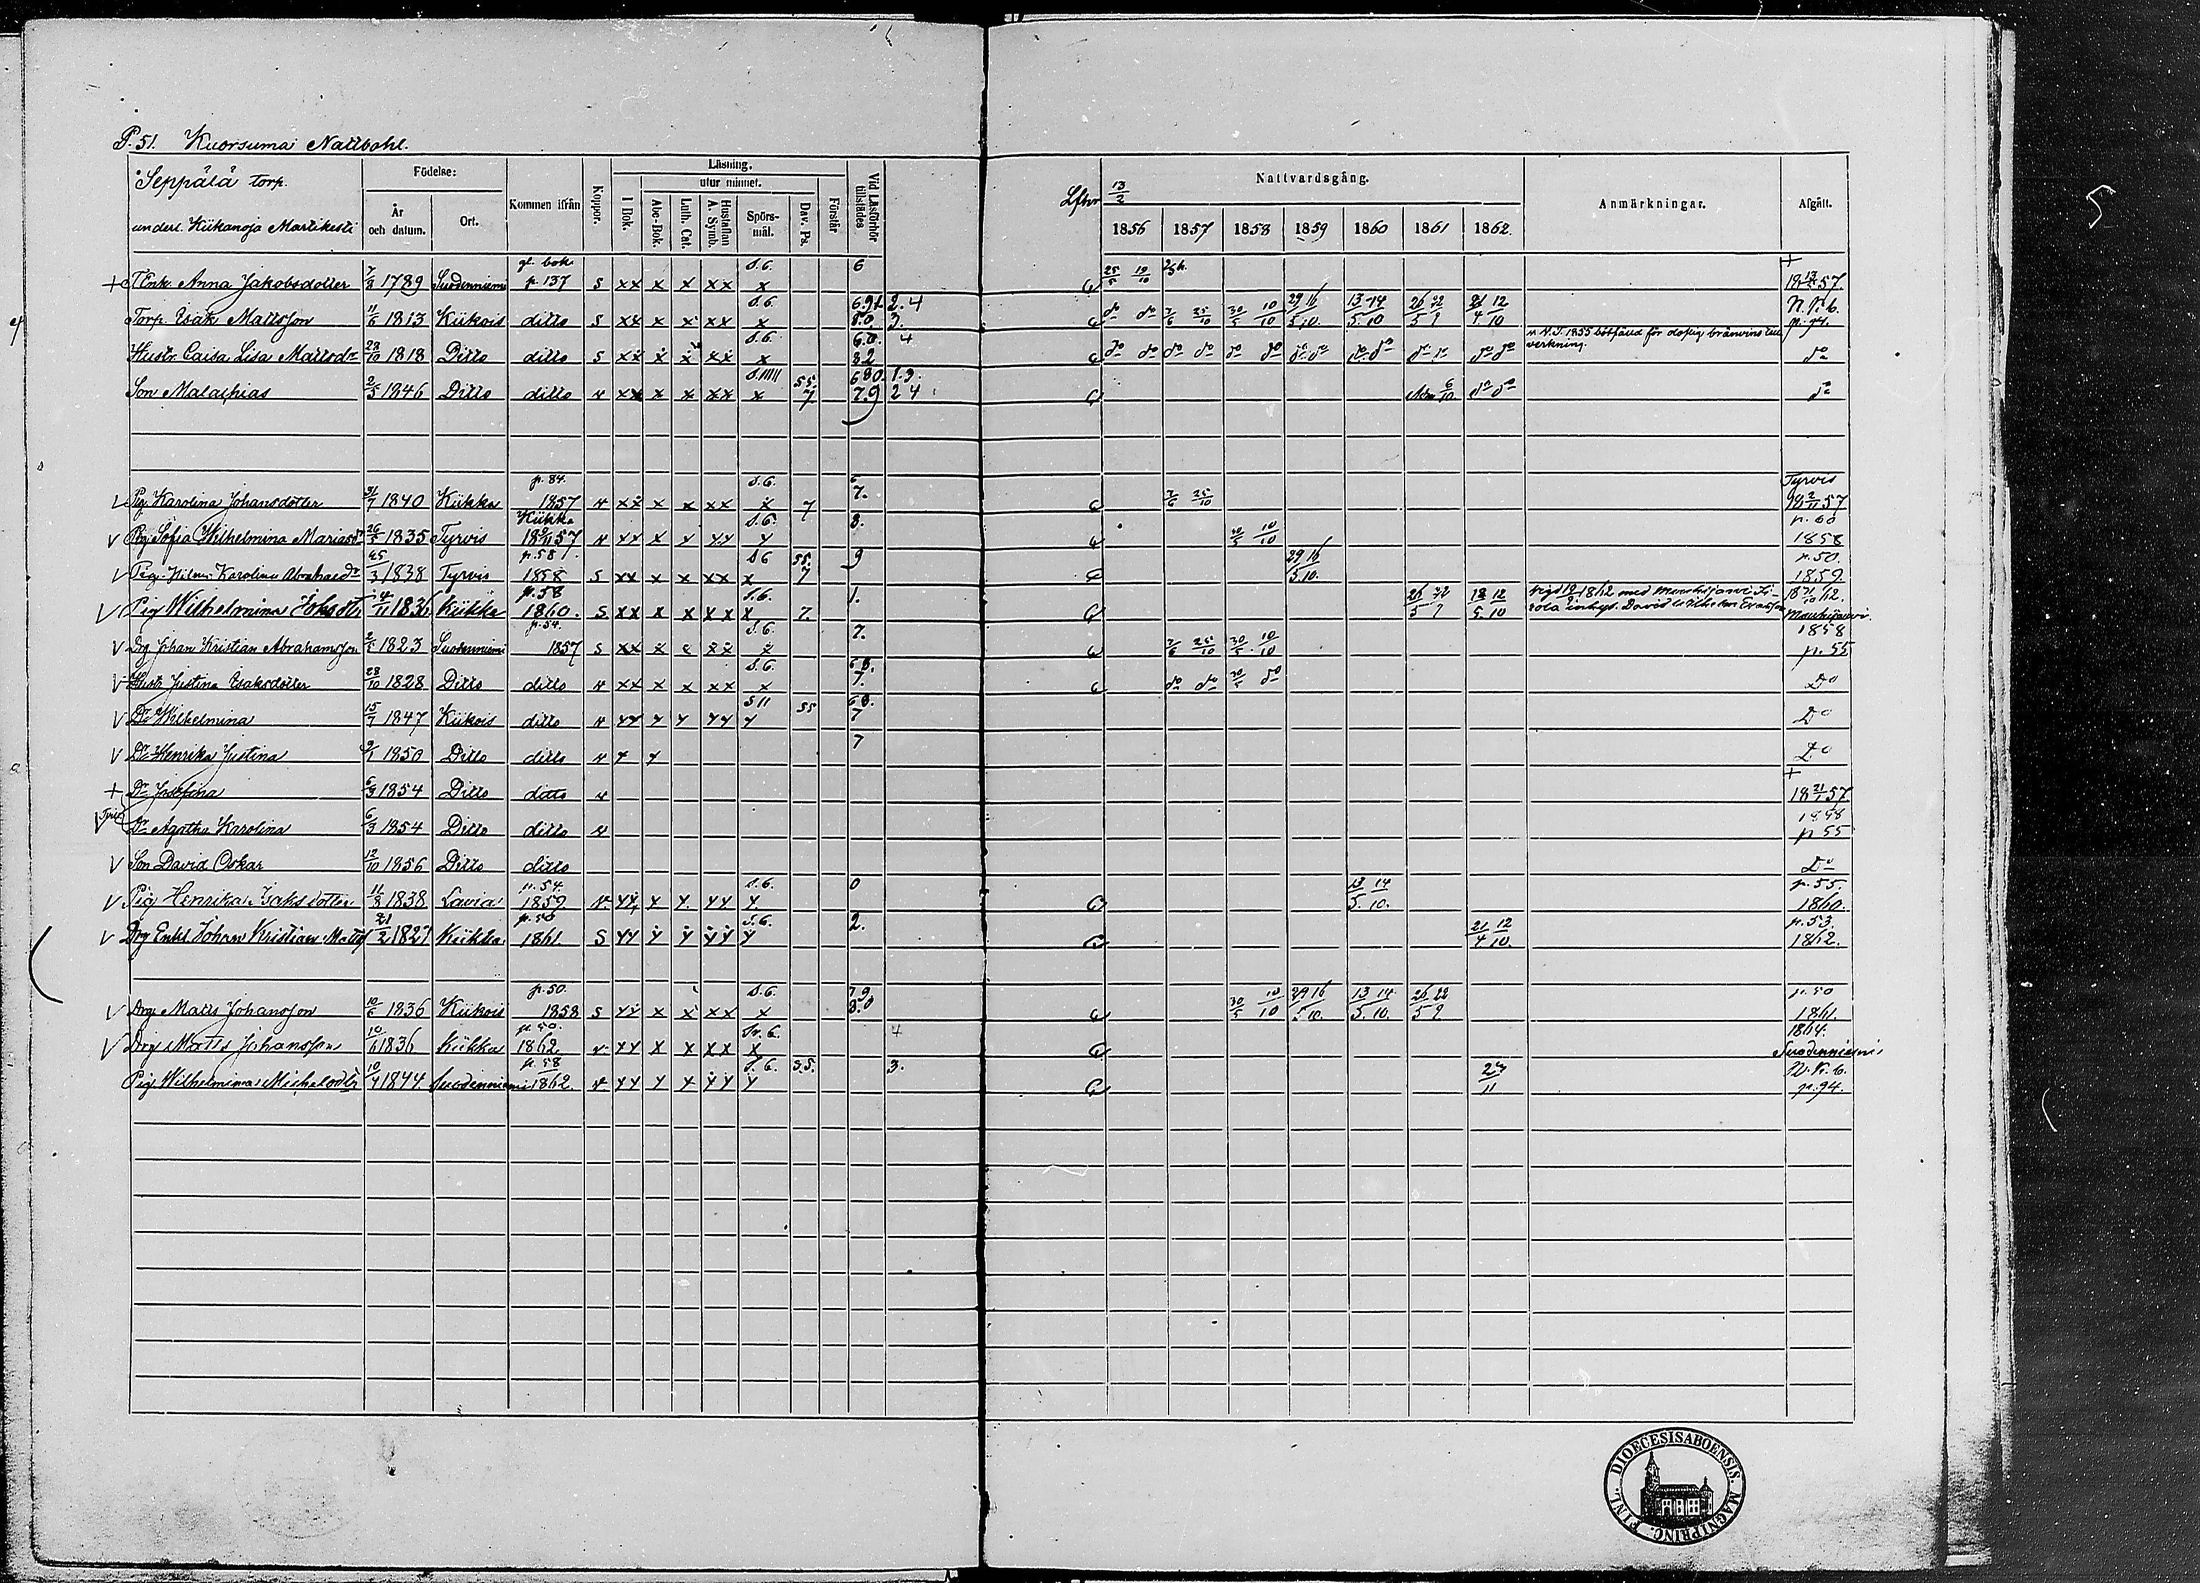 P. 51. Kuorsuma Nattbohl.
Seppälä torp.
underl. Kiikanoja Martikesti
Födelse:
År och datum.
Ort.
Kommen ifrån
Koppor.
Läsning.
I Bok.
utur minnet.
Abc-Bok.
Luth. Cat.
Hustaflan A. Symb.
Spörsmål.
Dav. Ps.
Förstår
Vid Läsförhör tillstädes
Nattvardsgång.
13/2
1856 1857 1858 1859 1860 1861 1862.
Anmärkningar.
Afgått.
+ T. Enk. Anna Jakobsdotter 7/3 1789 Suodenniemi gl. bok p. 137 s xx x x xx s.6. x 6 25/5 19/10 + 18 13/2 57.
Torp. Esak Mattsson 11/6 1813 Kiikois ditto s xx x x xx s.6. x 2.4 3. do do 7/6 25/10 30/5 10/10 29/5 16/10. 13/5 14/10 26/5 22/9 21/4 12/10 N.K.b. p. 94.
Hustr. Caisa Lisa Mattsdr 28/10 1818 Ditto ditto s xx x x xx s.6. x 4 do do do do do do do do do do do do do do 1855 bötfäld för bränvins till verkning. do
Son Malachias 2/5 1846 Ditto ditto v xx x x xx x 55. 7 680. 7.9 1.3. 2 4 6/10 do do do
Pig. Karolina Johansdotter 31/7 1840 Kiikka p. 84. 1857 v xx x x xx s.6. x 7 6 7. 7/6 25/10 Tyrvis 18 2/11 57
V Pig. Sofia Wilhelmina Mariasdr 26/5 1835 Tyrvis Kiikka 18 57 v xx x x xx s.6. x 8. 30/5 10/10 p. 60 1858
V Pig. Hilma Karolina Abrahamsdr 25/3 1838 Tyrvis p. 58 1858 s xx x x xx s.6 x 55. 7 9 29/5 16/10. p. 50. 1859.
V Pig Wilhelmina 4/11 1836 Kiikka p. 58 1860. s xx x x xx s.6. x 7. 1. 26/5 22/9 18/5 12/10 1862 med Mouhijärvi David Wilhelm 18 62. Mouhijärvi.
V Drg Johan Kristian Abrahamsson 2/5 1823 Suodenniemi p. 54. 1857 s xx x x xx s.6. x 7. 7/6 25/10 30/5 10/10 1858 p. 55
V Hustr Justina Esaksdotter 28/10 1828 Ditto ditto v xx x x xx s.6. x 6 8. 7. do do 30/5 do Do
V Dr Wilhelmina 15/7 1847 Kiikois ditto v xx x x xx s11 x 55 6 8. 7 Do
V Dr Henrika Justina 9/1 1850 Ditto ditto v x x 7 Do
+ Dr Josefina 6/3 1854 Ditto ditto v + 18 21/1 57.
V Dr Agatha Karolina 6/3 1854 Ditto ditto v 1858 p 55
V Son David Oskar 12/10 1856 Ditto ditto Do
V Pig Henrika Isaksdotter 11/3 1838 Lavia p. 54. 1859 v. xx x x. xx s.6. x. 0 13/5. 14/10. p. 55. 1860.
V Drg Enkl Johan Kristian Matts 21/2 1827 Kiikka p. 50 1861. s xx x x xx s.6. x 2. 21/4 12/10. p. 53. 1862.
V Drg Matts Johansson 10/6 1836 Kiikois p. 50. 1858 s xx x x xx s.6. x 7 9 8.0 30/5 10/10 29/5 16/10. 13/5. 14/10. 26/5 22/9 p. 50 1861.
V Drg Matts Johansson 10/6 1836 Kiikka p. 50. 1862 v xx x x xx x 4 1864. Suodenniemi
Pig. Wilhelmina Michelsdtr 10/4 1844 Suodenniemi p. 58 1862. v. xx x x xx s.6. x 55. 3. 23/11 N.K.b. p. 94.
DIOECESIS ABOENSIS. MAGNI PRINC. FINL.
5